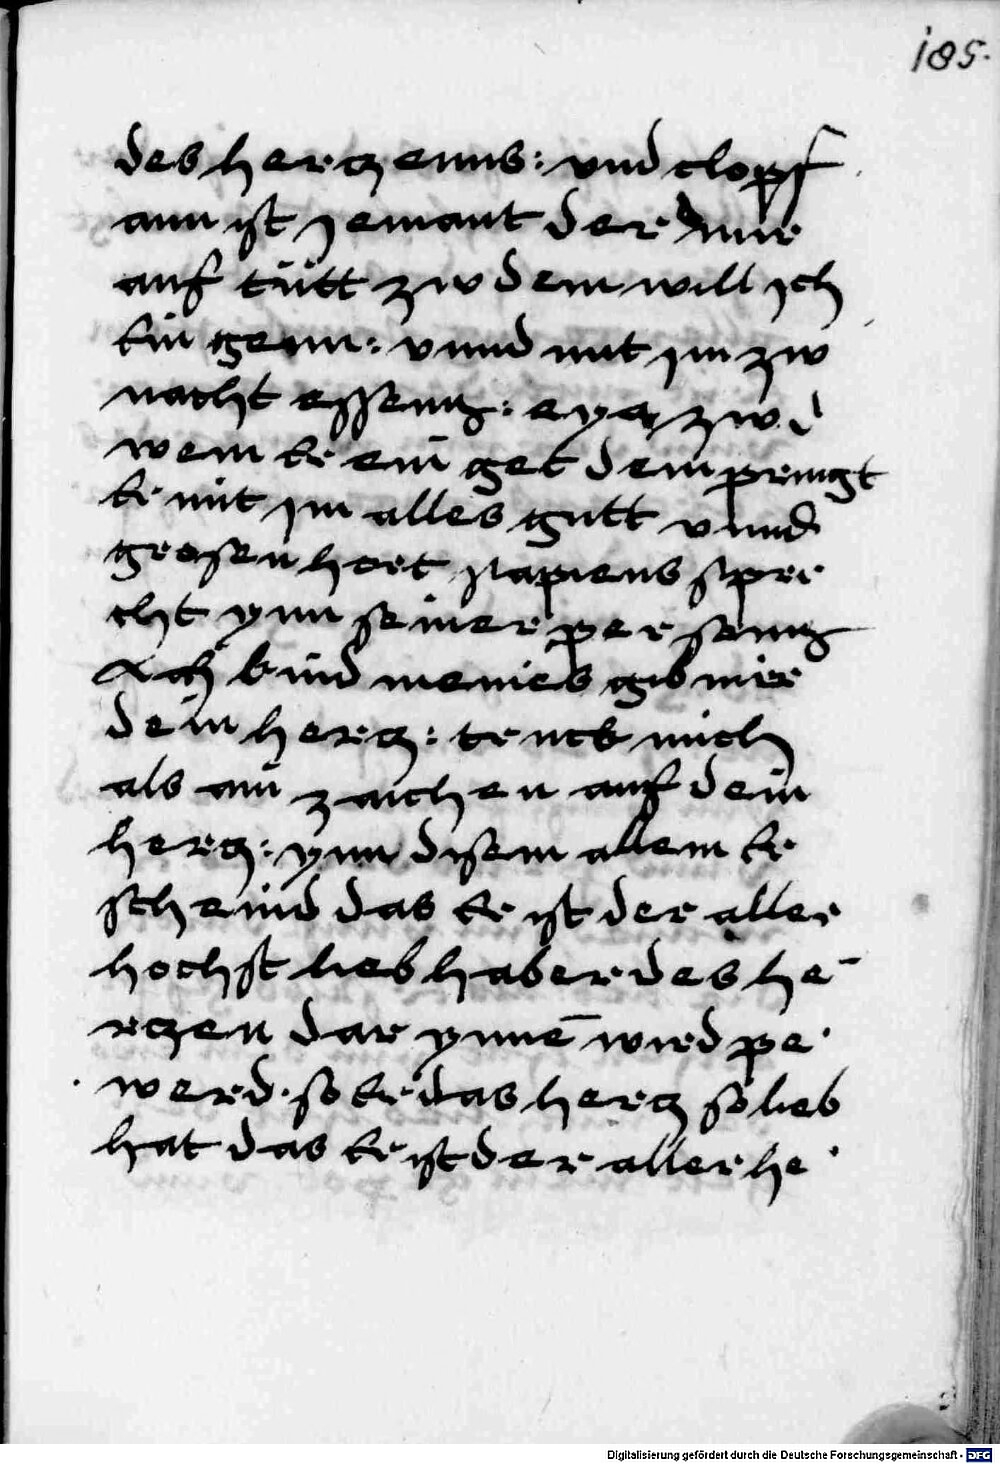 185.
des hertzenns: vnd clopf
ann ist jemant der mir
auf tütt zw dem will jch
Ein genn: vnnd mit jm zw
nacht essenng: eya zw
wem Er ein get dem pringt
Er mit jm alles gutt vnnd
grosen hort sapiens spre
cht ynn seiner personng
Ach kind meines gib mier
dein hertz: trück mich
als ain zaichen auf dein
hertz: ynn disem allem Er
scheind das Er ist der aller
hochst liebhaber des he
rtzen dar ynne wird pe
werd. so Er das hertz so lieb
hat das Er ist der aller he
Digitalisierung gefördert durch die Deutsche Forschungsgemeinschaft - DFG